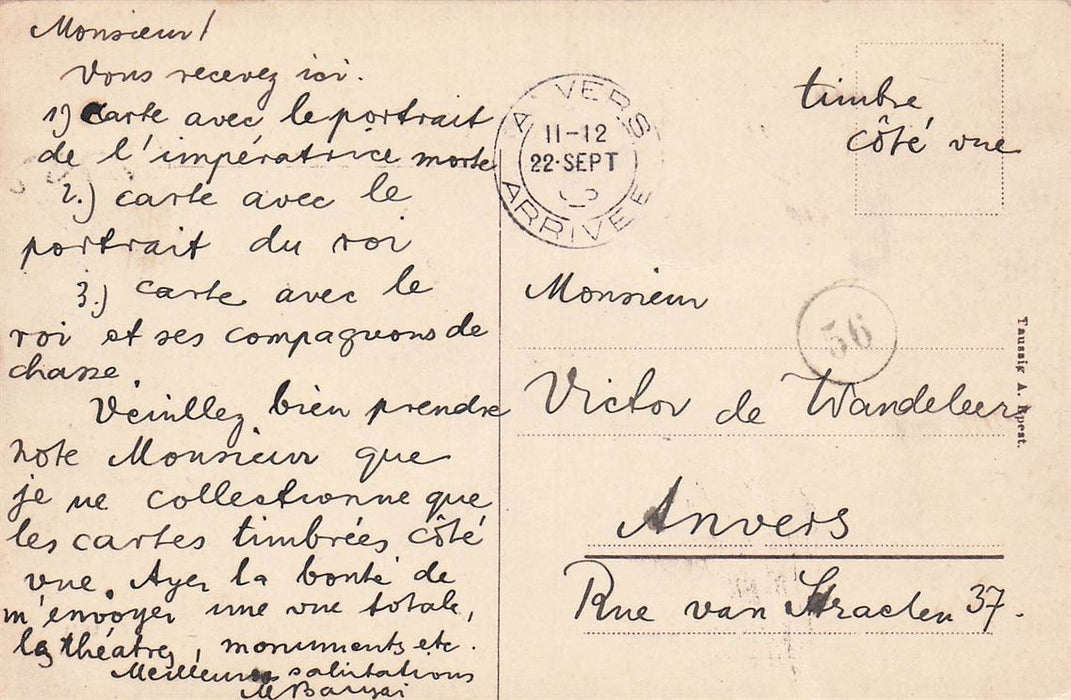 Monsieur!
Vous recevez ici.
1) carte avec le portrait
de l'impératrice morte
2.) carte avec le
portrait du roi
3.) carte avec le
roi et ses compagnons de
chasse.
Veuillez bien prendre
note Monsieur que
je ne collectionne que
les cartes timbrées côté
vue. Ayez la bonté de
m'envoyer une vue totale,
les théâtres, monuments etc.
Meilleures salutations
ANVERS
11-12
22·SEPT
ARRIVÉE
timbre
côté vue
56
Monsieur
Victor de Wandeleer
Anvers
Rue van Straelen 37.
Taussig A. Bpest.